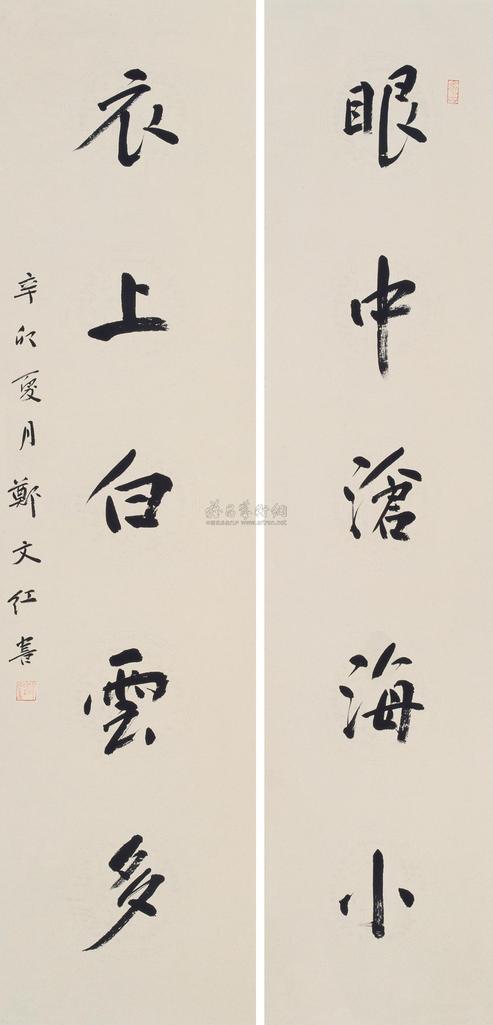 眼中滄海小
衣上白雲多
辛卯夏月鄭文红書
www.artron.net